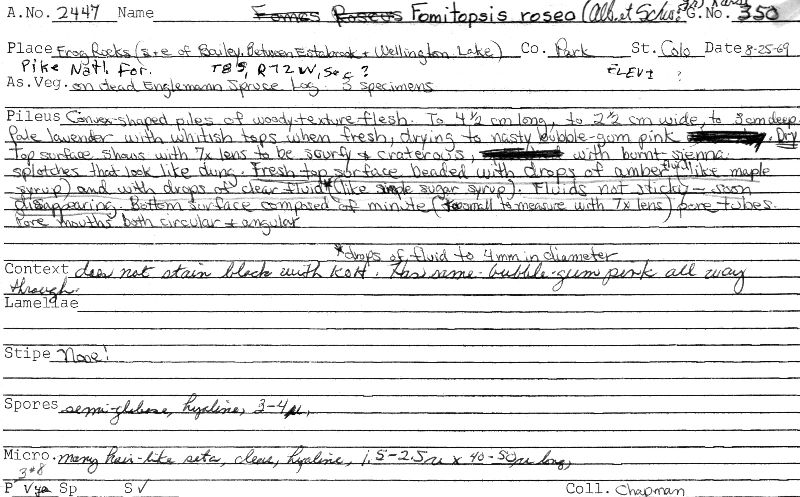 A.No. 2447 Name Fomes Roseus Fomitopsis rosea (Alb. et Schw. Fr) Karst G.No. 350
Place Frog Rocks (site of Bailey. Between Estabrook + Wellington Lake) Co. Park St. Colo Date 8-25-69
Pike Natl. For. T8S, R72W, Sec ? ELEV: ?
As. Veg. on dead Englemann Spruce Log. 3 specimens
Pileus Convex-shaped piles of woody-texture flesh. To 4½ cm long, to 2½ cm wide, to 3cm deep.
Pale lavender with whitish tops when fresh, drying to nasty bubble-gum pink. Dry
Top surface shows with 7x lens to be scurfy + craterous, with burnt-sienna
splotches that look like dung. Fresh top surface beaded with drops of amber fluid (like maple
syrup) and with drops of clear fluid* (like simple sugar syrup). Fluids not sticky - soon
disappearing. Bottom surface composed of minute (too small to measure with 7x lens) pore tubes.
Pore mouths both circular + angular
*drops of fluid to 4mm in diameter
Context does not stain black with KOH. Has same bubble-gum pink all way
through.
Lamellae
Stipe None!
Spores semi-globose, hyaline, 3-4µ,
Micro. many hair-like seta, clear, hyaline, 1.5-2.5µ x 40-50µ long,
3#8
P Vya Sp S √ Coll. Chapman